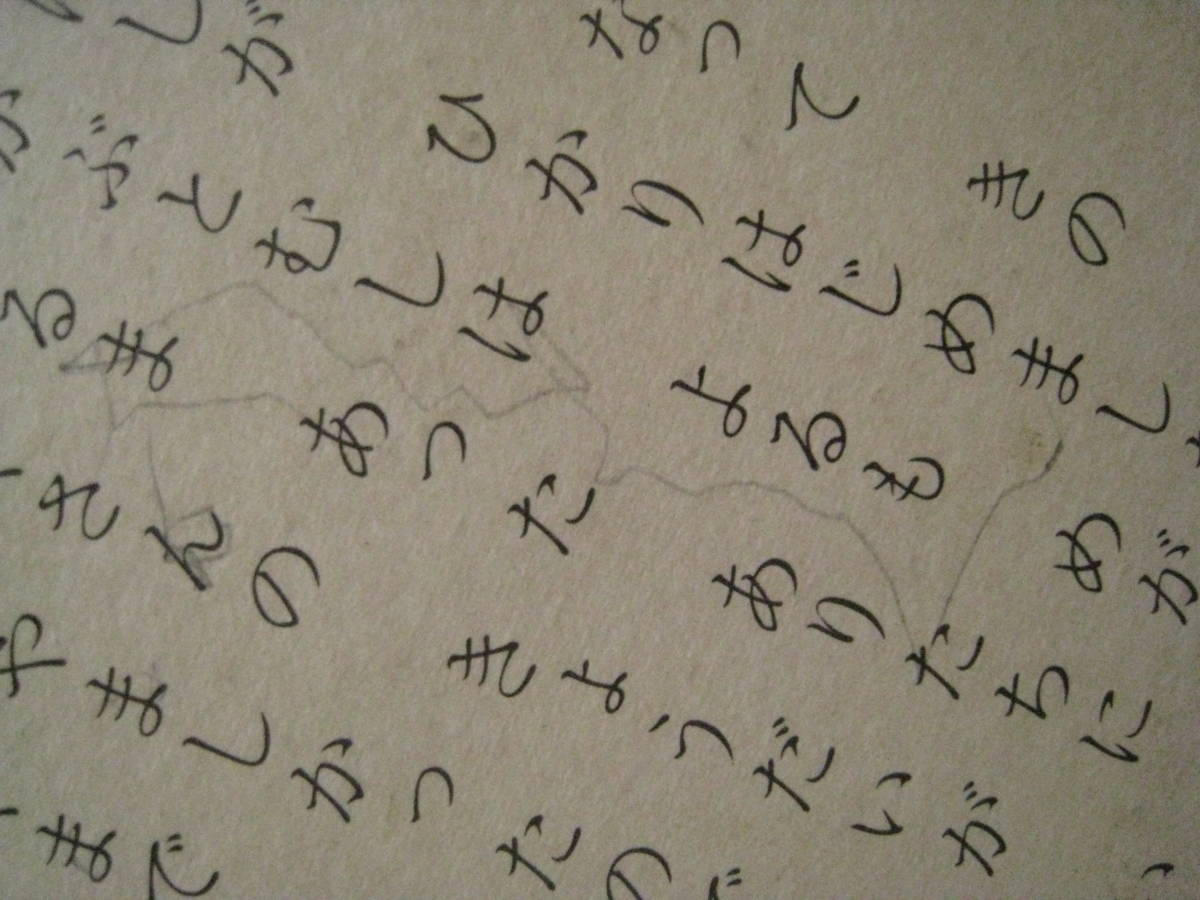 なって きの
しが ひかりはじめまし
かぶとむしは よるも めが
るま あった ありたちに
さんの きょうだいが
やましかったの
まで